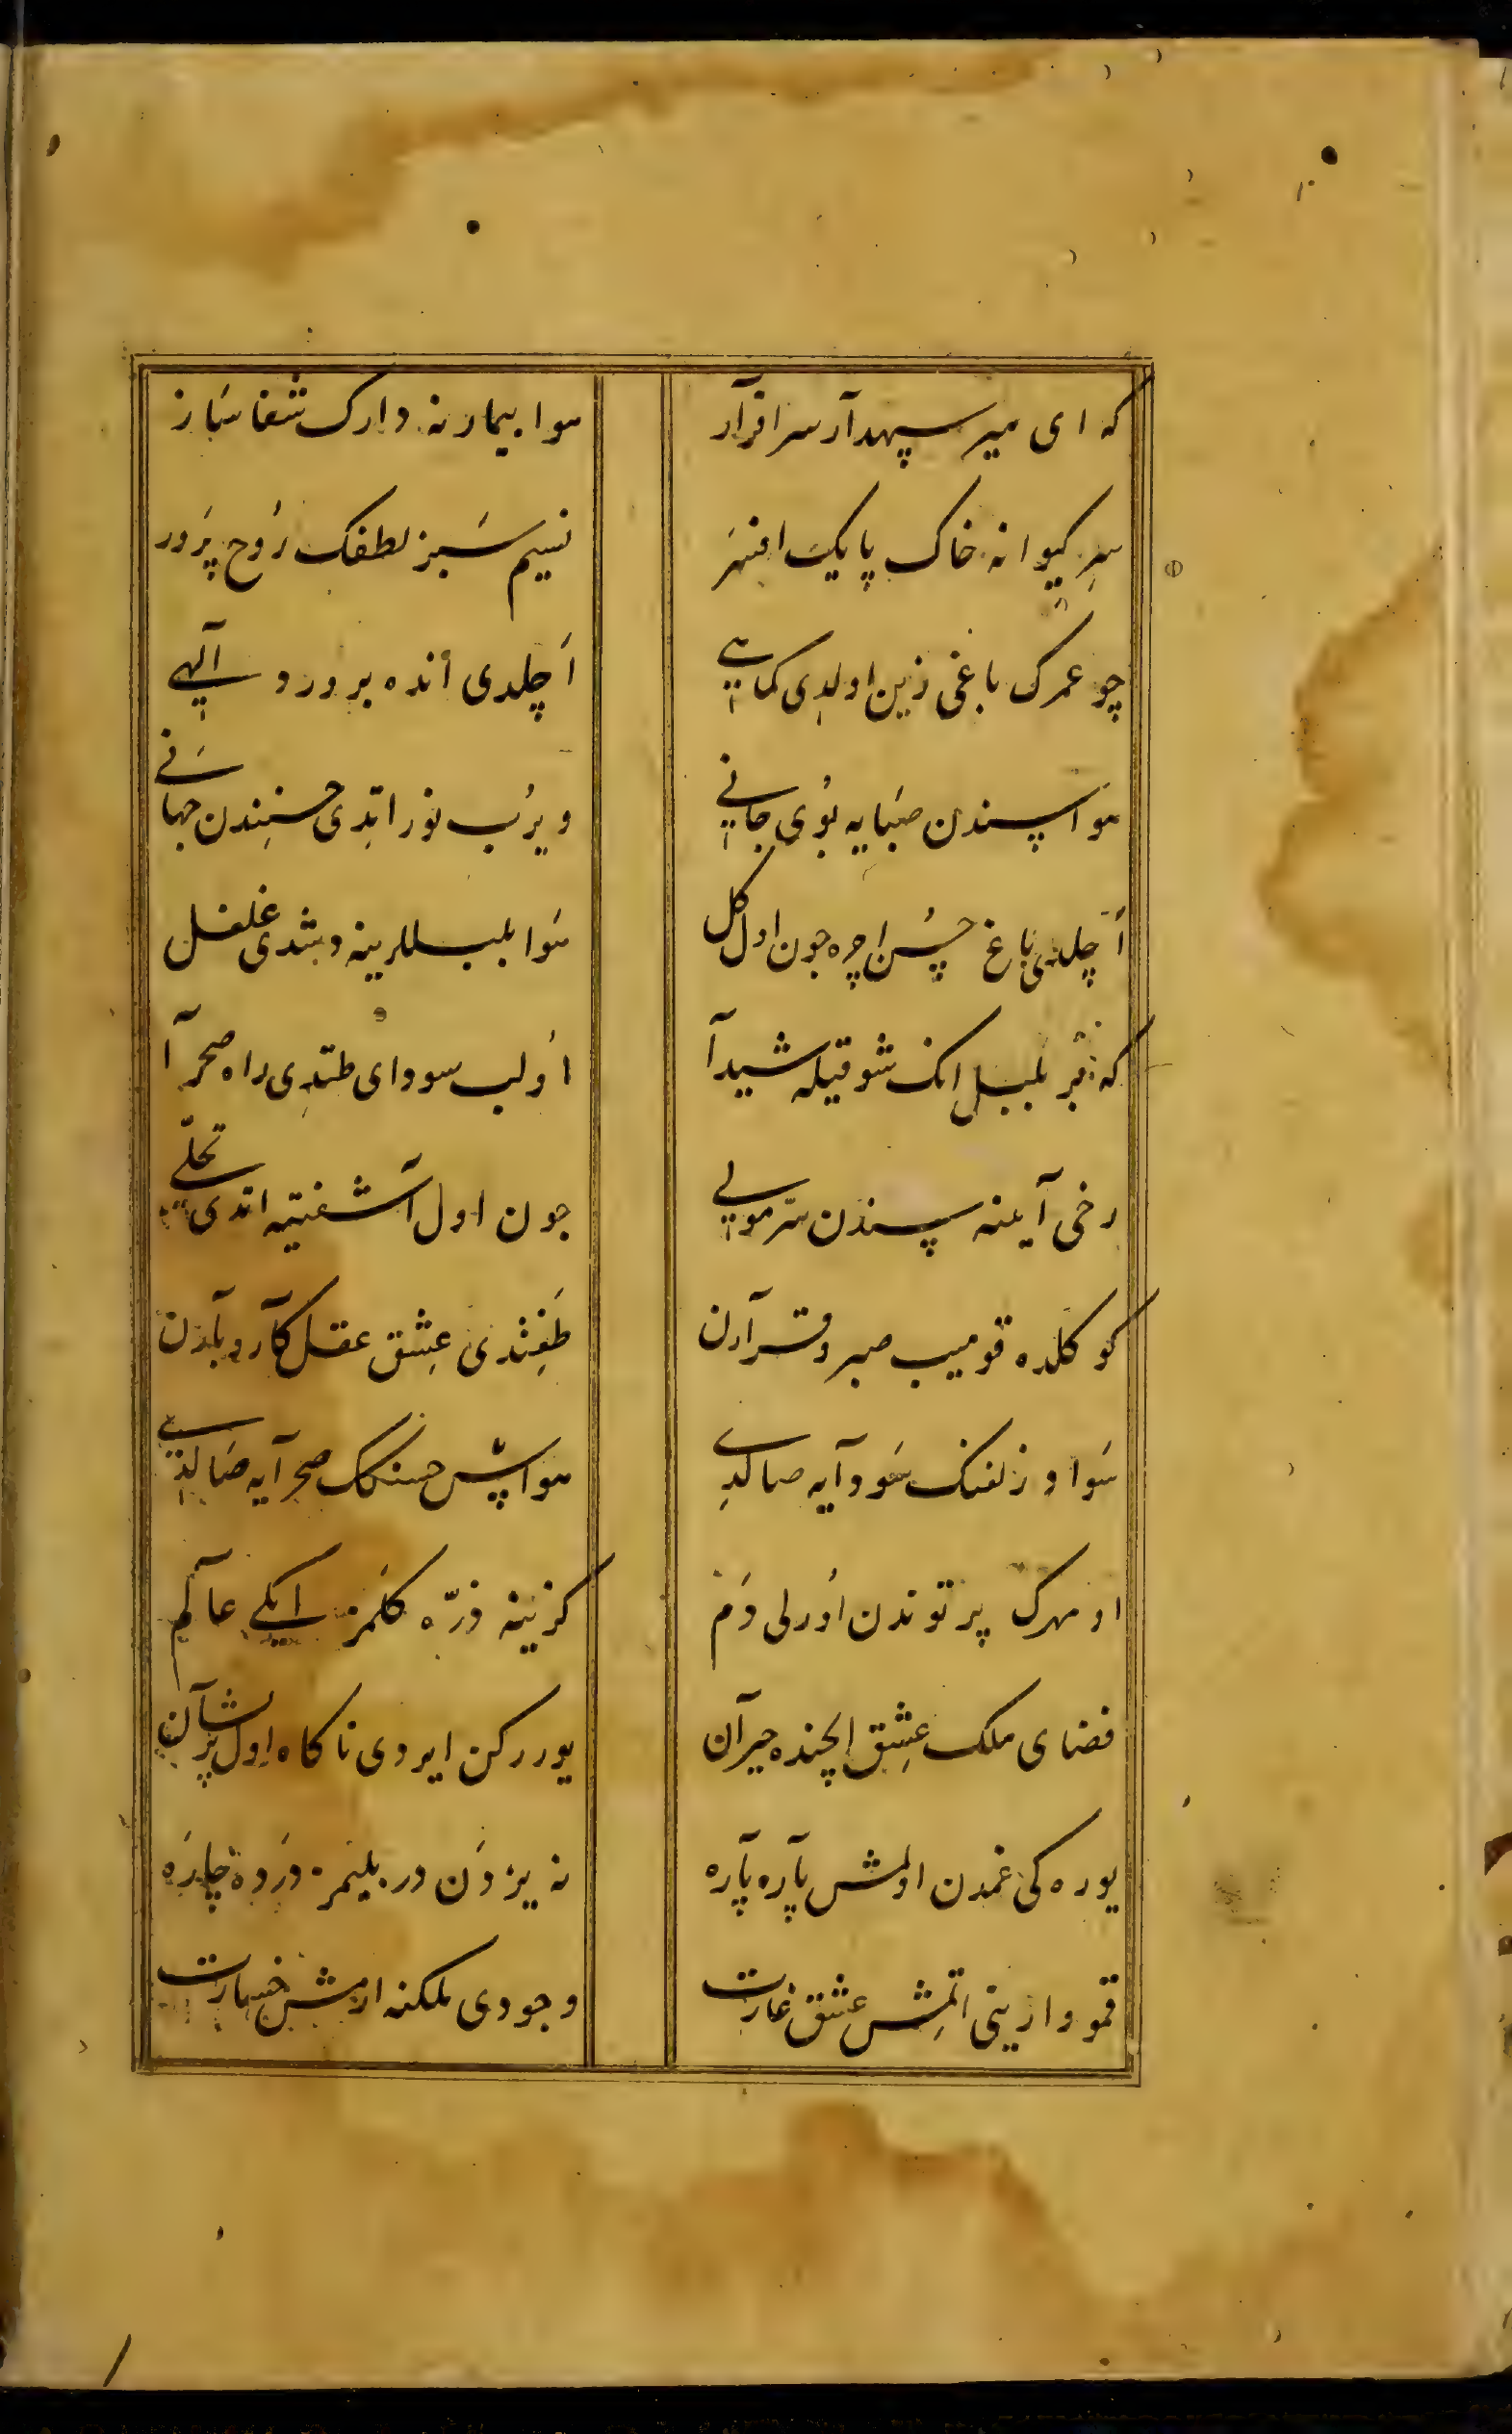 که ای میر سپهدار سرافراز هوا بیمارنه دارک شفاساز
سر کیوانه خاک پایک افسر نسیم سبز لطفک روح پرور
چو عمرک باغی زین اولدی کماهی اچلدی انده بر ورد الهی
هواسندن صبایه بوی جانی ویرب نور اتدی حسنندن جهانی
اچلدی باغ حسن اچره چون اول کل هوا بلبللرینه دشدی غلغل
که بر بلبل انک شوقیله شیدا اولب سودای طتدی راه صحرا
رخی آینه سندن سر مویی چون اول آشفتیه اتدی تجلی
کوکلده قومیب صبر و قراردن طغتدی عشق عقل کار و باردن
سواد زلفنک سودایه صالدی هواسی حسننک صحرایه صالدی
او مهرک پرتوندن اورلی دم کزینه ذره کلمز ایکی عالم
فضای ملک عشق ایچنده حیران یوررکن ایردی ناکاه اول پریشان
یوره کی غمدن اولمش پاره پاره نه یزدن در بلینمز درده چاره
قمو وارینی اتمش عشق غارت وجودی ملکنه ارمش خسارت